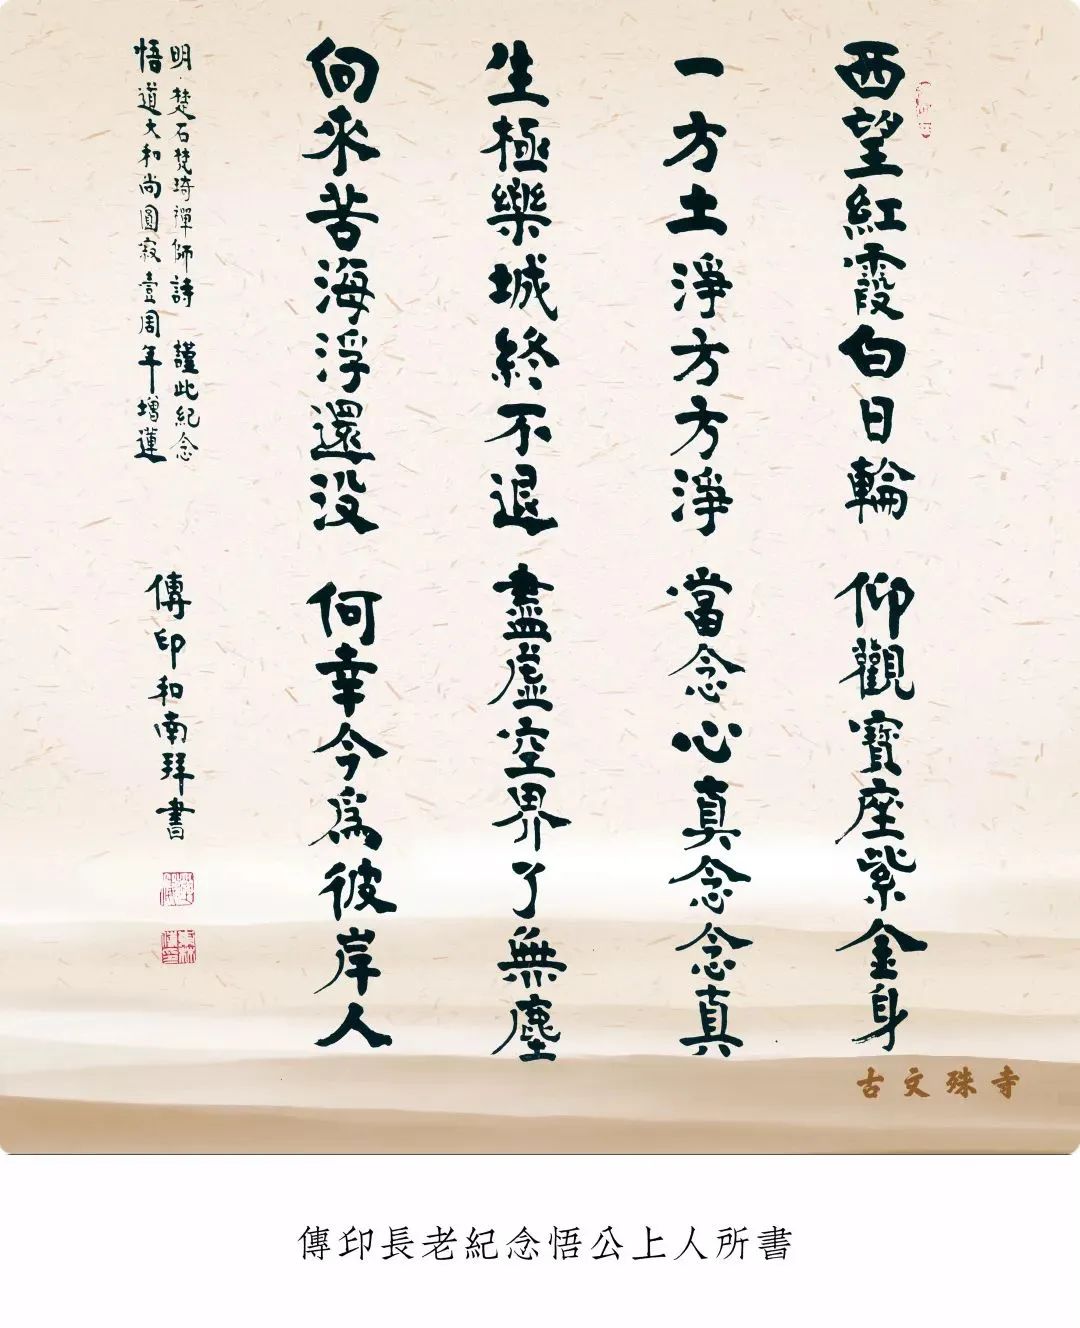 西望紅霞白日輪 仰觀寶座紫金身
一方土淨方方淨 當念心真念念真
生極樂城終不退 盡虛空界了無塵
向來苦海浮還没 何幸今為彼岸人
明楚石梵琦禪師詩 謹此紀念
悟道大和尚圓寂壹周年增蓮
傳印和南拜書
古文殊寺
傳印長老紀念悟公上人所書